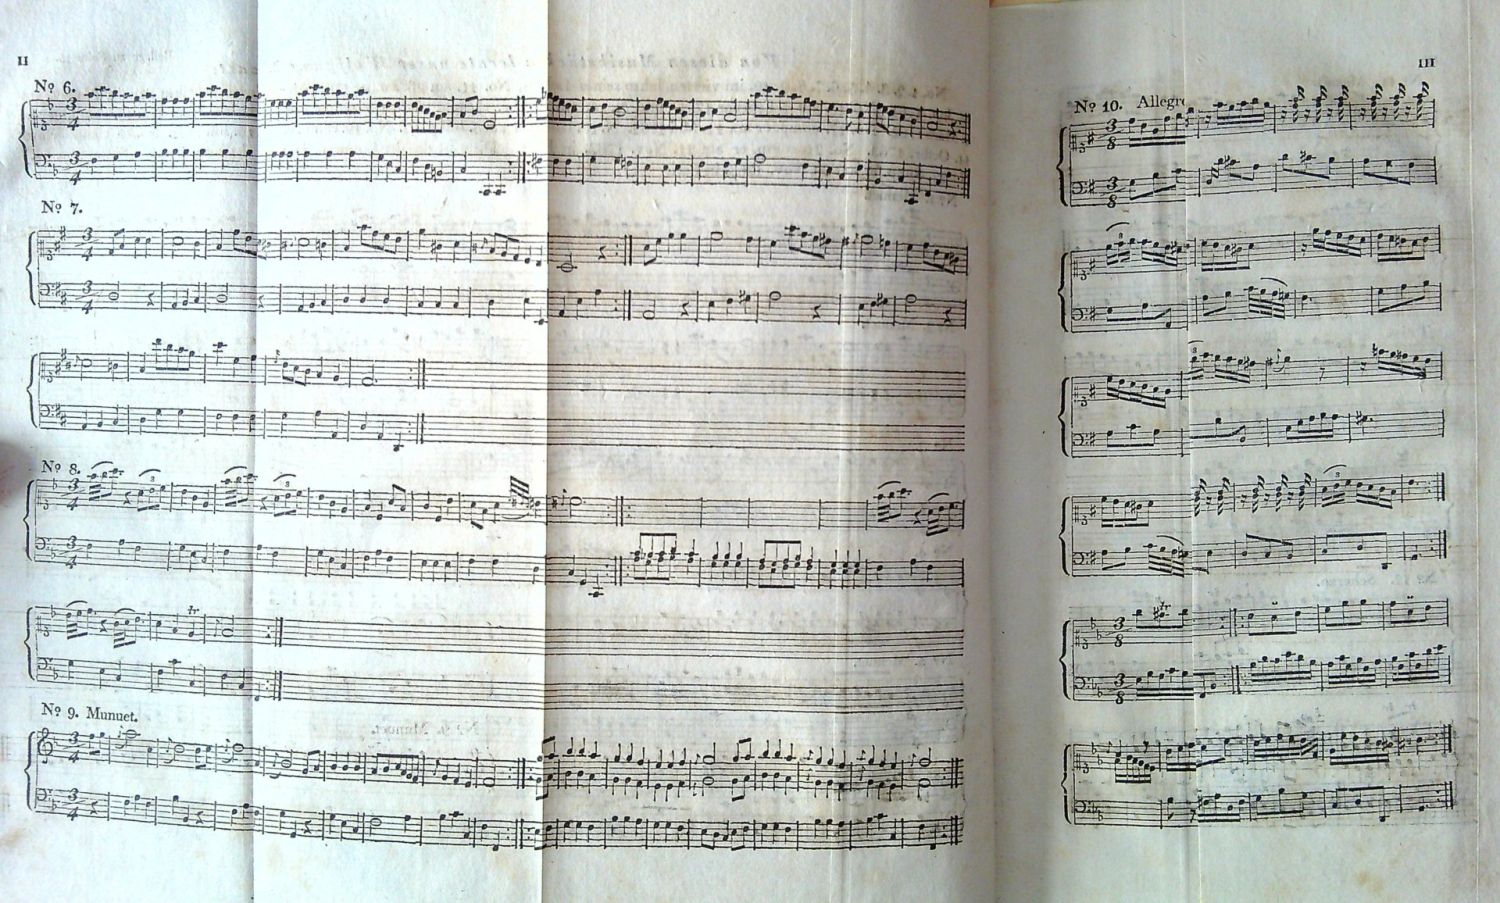 II
Nº 6.
Nº 7.
Nº 8.
Nº 9. Munuet.
III
Nº 10. Allegro